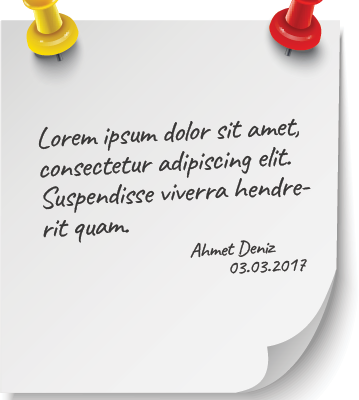 Lorem ipsum dolor sit amet,
consectetur adipiscing elit.
Suspendisse viverra hendre-
rit quam.
Ahmet Deniz
03.03.2017